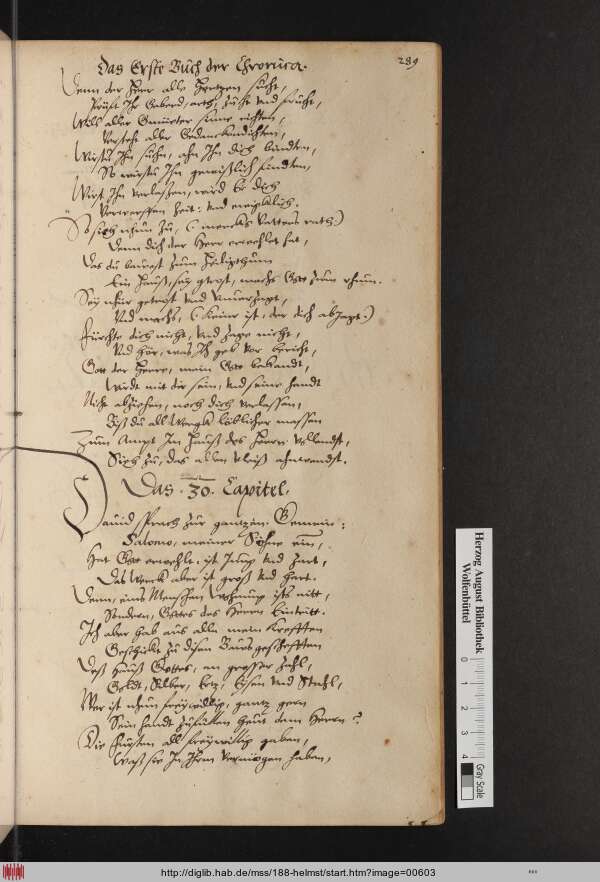 289
Das Erste Buch der Chronica.
Denn der Herr alle Hertzen sucht,
Prüft Ihr Geberd, arth, Zucht und frücht,
Will aller Gemüeter sinne richten,
Versteht aller Gedancken dichten,
Wirstu Ihn suchn, ahn Ihn dich binden,
So wirstu Ihn gewißlich finden,
Wirst Ihn verlassen, wird Er dich
Verwerffen Zeit: und ewigklich.
So sich nhun Zu, (merck Vatters rath)
Denn dich der Herr erwehlet hat,
Das du bauest Zum heiligthum
Ein Hauß, sey getrost, machs Gott Zum rhum.
Sey nhur getrost und unverzagt,
Und machs, (Keiner ist, der dich abjagt.)
Fürchte dich nicht, und Zage nicht,
Und hör, was Ich geb vor bericht,
Gott der Herre, mein Gott bekandt,
Wirdt mit dir sein, und seine handt
Nicht abziehen, noch dich verlassen,
Biß du all Werck löblicher massen
Zum Ampt Im Hauß des Herrn vollendst,
Sich Zu, das allen vleiß ahnwendst.
Das .30. Capitel.
Dauid sprach Zur gantzen Gemein:
Salomo, meiner Söhne ein,
Hat Gott erwehlt, ist Jung und Zart,
Das Werck aber ist groß und hart.
Denn, eins Menschen Wohnung ists nitt,
Sondern, Gottes des Herrn Eintritt.
Ich aber hab aus alln mein Krefften
Geschickt Zu disen Baws geschefften
Deß Hauß Gottes, an grosser Zahl,
Goldt, Silber, Ertz, Eisen und Stahl,
Wer ist nhun freywillig, gantz gern
Sein handt Zufüllen heut dem Herrn?
Die Fürsten all freywillig gaben,
Waß sie In Ihrm Vermögen haben,
Herzog August Bibliothek
Wolfenbüttel
0 1 2 3 4
Gray Scale
http://diglib.hab.de/mss/188-helmst/start.htm?image=00603